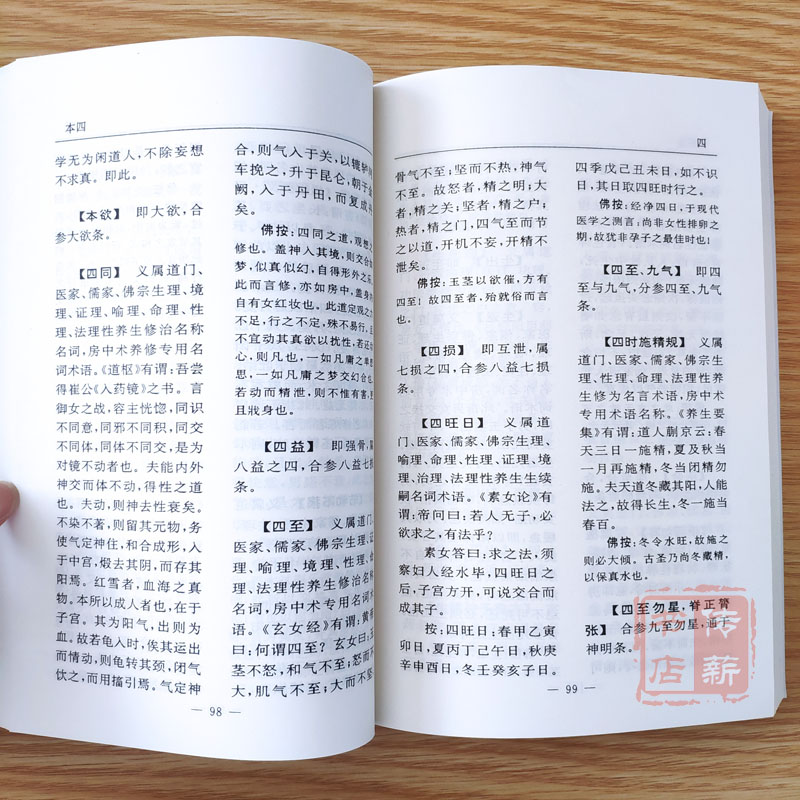 本四
学无为闲道人，不除妄想
不求真。即此。
【本欲】 即大欲，合
参大欲条。
【四同】 义属道门、
医家、儒家、佛宗生理、境
理、证理、喻理、命理、性
理、法理性养生修治名称
名词，房中术养修专用名
词术语。《道枢》有谓：吾尝
得崔公《入药镜》之书。言
御女之战，容主恍惚，同识
不同意，同邪不同积，同交
不同体，同体不同交，是为
对镜不动者也。夫能内外
神交而体不动，得性之道
也。夫动，则神去性衰矣。
不染不著，则留其元物，务
使气定神住，和合成形，入
于中宫，煅去其阴，而存其
阳焉。红雪者，血海之真
物。本所以成人者也，在于
子宫。其为阳气，出则为
血。故若龟入时，俟其运出
而情动，则龟转其颈，闭气
饮之，而用搐引焉。气定神
合，则气入于关，以辘轳
车挽之，升于昆仑，朝于金
阙，入于丹田，而复成丹
矣。
佛按：四同之道，观想之
修也。盖神入其境，则交合
梦，似真似幻，自得形外之乐。
此而言修，亦如房中，盖身
自有女红妆也。此道定观之
不足，行之不定，殊不易行，且
不宜动其真欲以扰性，若还中
心，则凡也，一如凡庸之单思
思，一如凡庸之梦交幻合也。
若动而精泄，则不惟有害，更
且戕身也。
【四益】 即强骨，属
八益之四，合参八益七损
条。
【四至】 义属道门、
医家、儒家、佛宗生理、命
理、喻理、境理、性理、证
理、法理性养生修治名称
名词，房中术专用名词术
语。《玄女经》有谓：黄帝
曰：何谓四至？玄女曰：玉
茎不怒，和气不至；怒而不
大，肌气不至；大而不坚，
— 98 —
四
骨气不至；坚而不热，神气
不至。故怒者，精之明；大
者，精之关；坚者，精之户；
热者，精之门，四气至而节
之以道，开机不妄，开精不
泄矣。
佛按：玉茎以欲催，方有
四至！故四至者，殆就俗而言
也。
【四损】 即互泄，属
七损之四，合参八益七损
条。
【四旺日】 义属道
门、医家、儒家、佛宗生理、
喻理、命理、性理、证理、境
理、治理、法理性养生生续
嗣名词术语。《素女论》有
谓：帝问曰：若人无子，必
欲求之，有法乎？
素女答曰：求之法，须
察妇人经水毕，四旺日之
后，子宫方开，可说交合而
成其子。
按：四旺日：春甲乙寅
卯日，夏丙丁己午日，秋庚
辛申酉日，冬壬癸亥子日。
四季戊己丑未日，如不识
日，其日取四旺时行之。
佛按：经净四日，于现代
医学之测言：尚非女性排卵之
期，故犹非孕子之最佳时也！
【四至、九气】 即四
至与九气，分参四至、九气
条。
【四时施精规】 义属
道门、医家、儒家、佛宗生
理、性理、命理、法理性养
生修为名言术语，房中术
专用术语名称。《养生要
集》有谓：道人蒯京云：春
天三日一施精，夏及秋当
一月再施精，冬当闭精勿
施。夫天道冬藏其阳，人能
法之，故得长生，冬一施当
春百。
佛按：冬令水旺，故施之
则必大倾。古圣乃尚冬藏精，
以保真水也。
【四至勿星，脊正膂
张】 合参九至勿星，通于
神明条。
— 99 —
传薪
书店